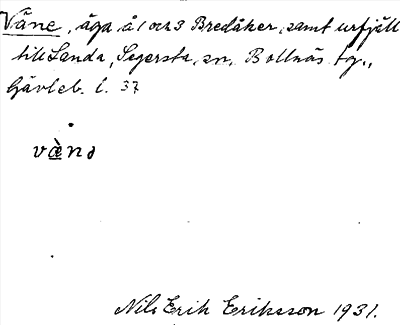 Väne, äga å 1 och 3 Bredåker, samt urfjäll
till Landa, Segersta sn, Bollnäs tg.,
Gävleb. l. 37
vä̀nə
Nils Erik Eriksson 1931.